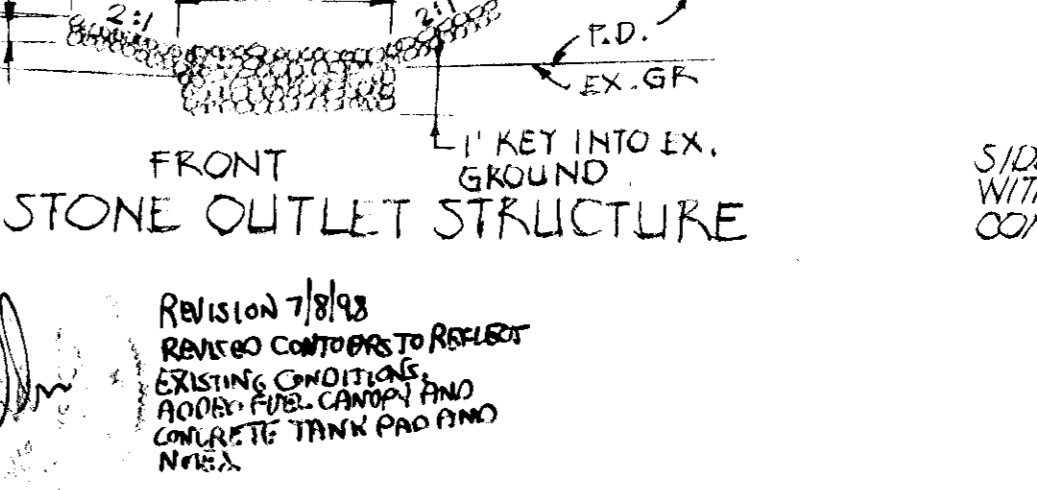 2:1
2:1
P.D.
EX. GR
1' KEY INTO EX.
GROUND
FRONT
STONE OUTLET STRUCTURE
SID
WIT
CON
REVISION 7/8/98
REVISED CONTOURS TO REFLECT
EXISTING CONDITIONS.
ADDED FUEL CANOPY AND
CONCRETE TANK PAD AND
NOTES